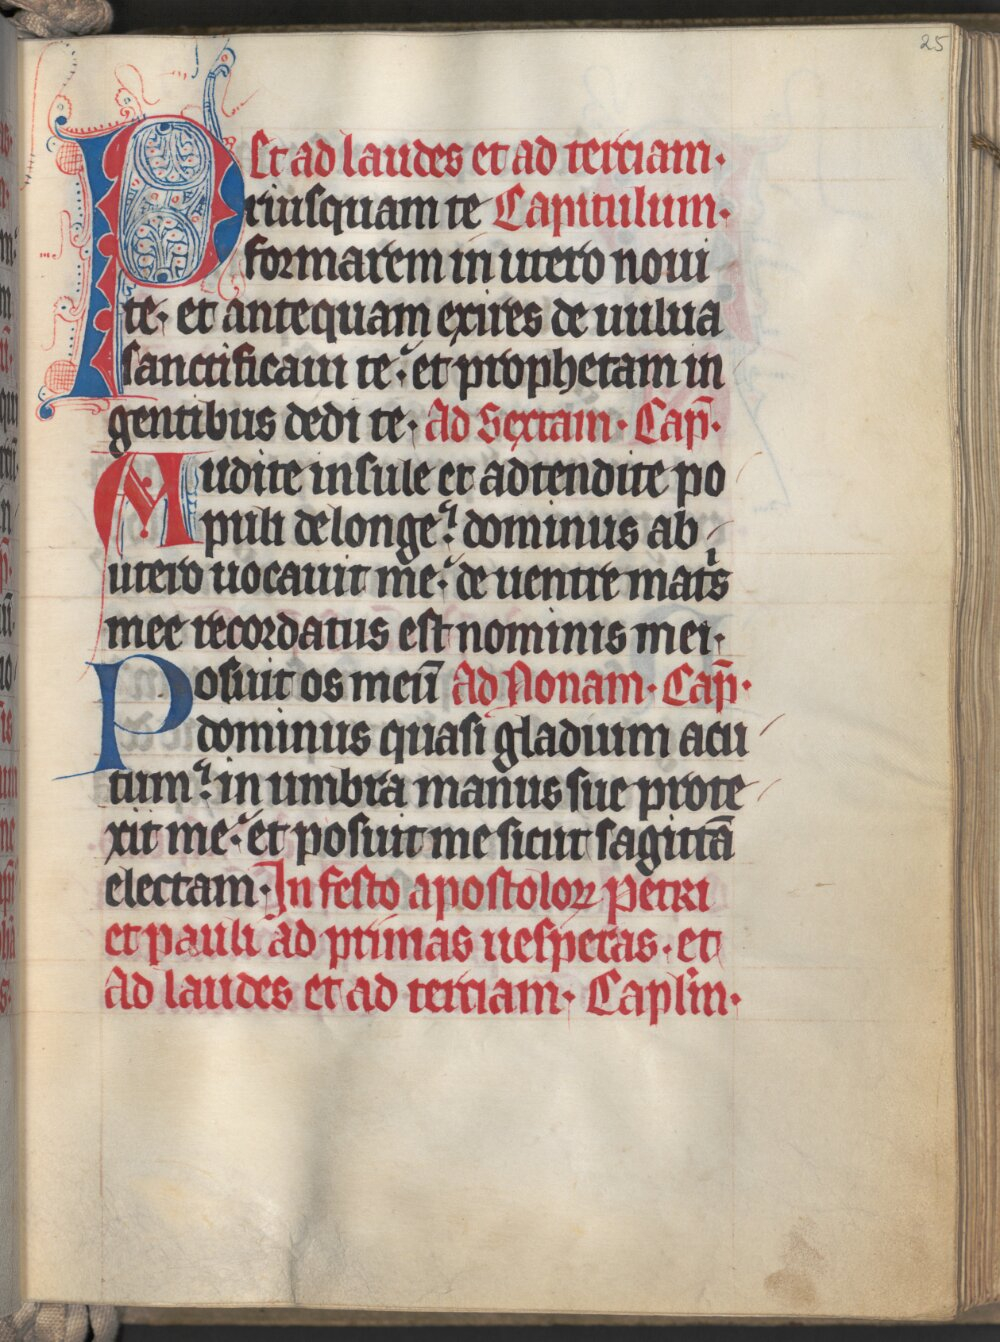 25
Et ad laudes et ad terciam·
Priusquam te Capitulum·
formarem in utero noui
te· et antequam exires de uulua
sanctificaui te· et prophetam in
gentibus dedi te· Ad Sextam· Cap̄·
Audite insule et adtendite po
puli de longe· dominus ab
utero uocauit me· de uentre mat͛s
mee recordatus est nominis mei·
Posuit os meū Ad Nonam· Cap̄·
dominus quasi gladium acu
tum· in umbra manus sue prote
xit me· et posuit me sicut sagittā
electam· In festo apostoloꝝ Petri
et pauli ad primas uesperas· et
Ad laudes et ad terciam· Capl̄m·